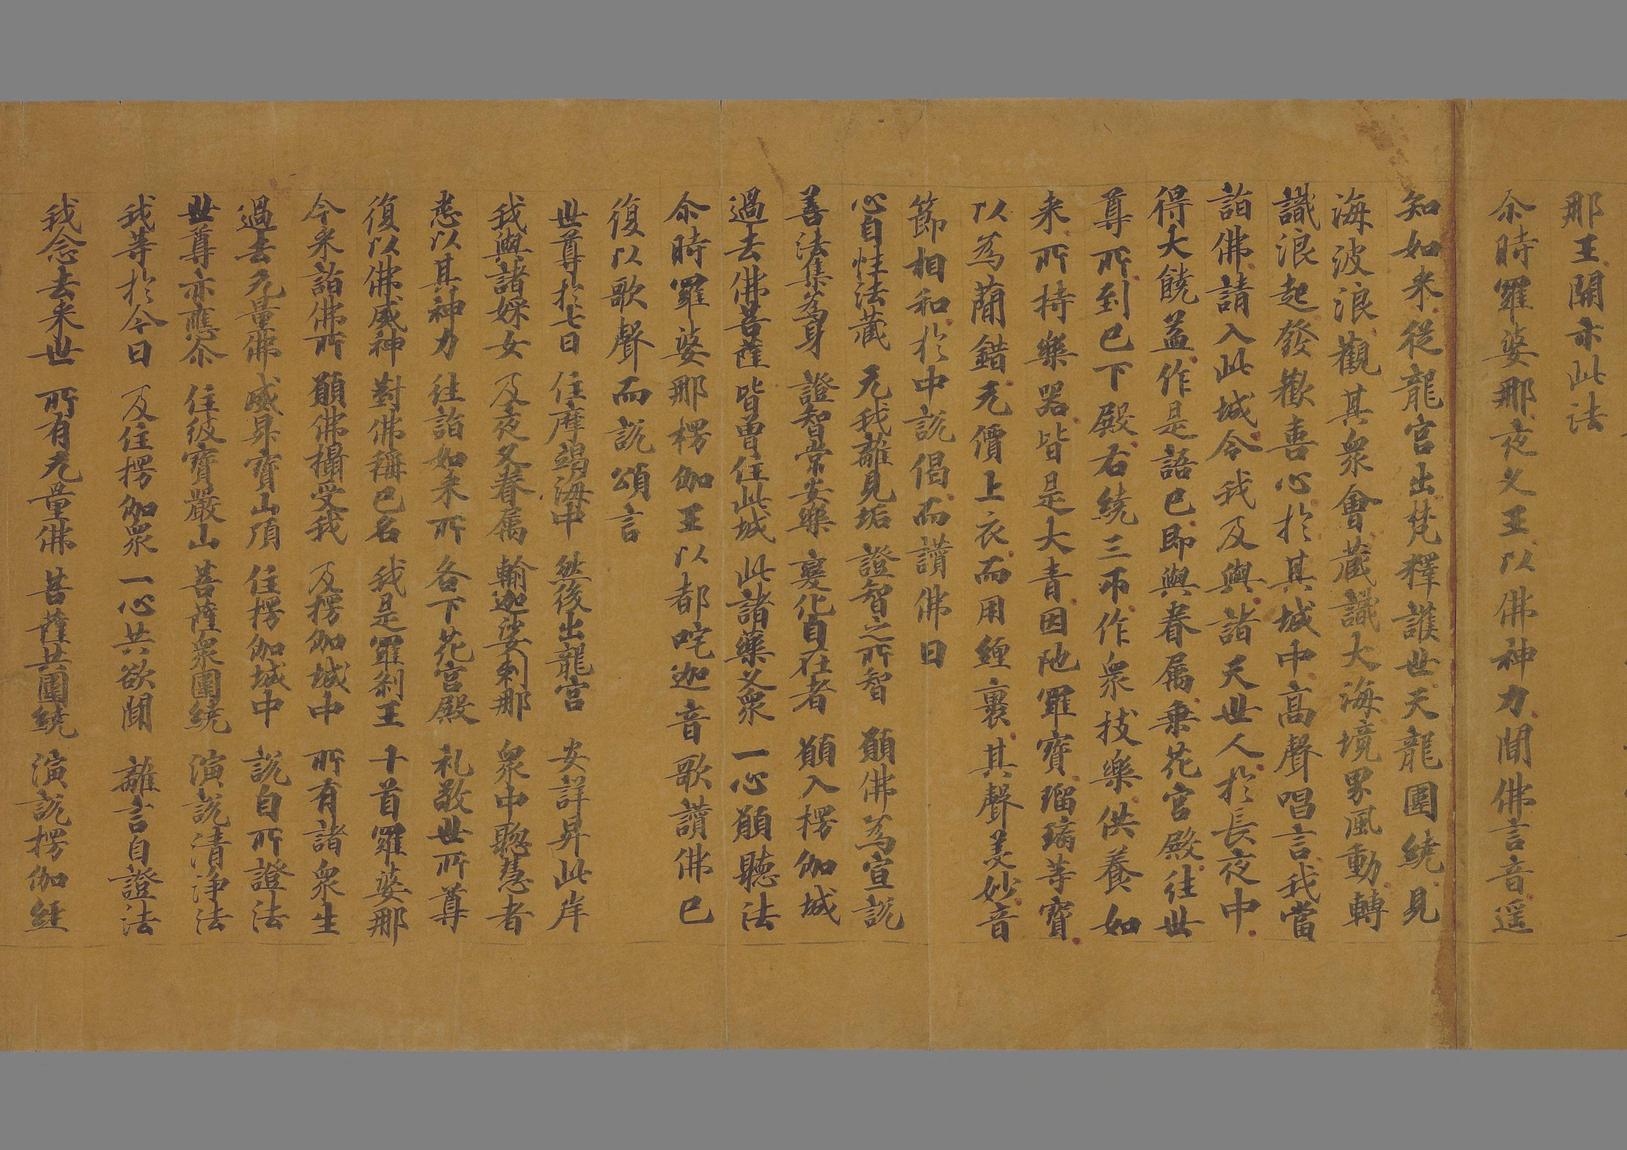 那王開亦此法
尒時羅婆那夜叉王以佛神力聞佛言音遥
知如来從龍宮出梵釋護世天龍圍繞見
海波浪觀其衆會藏識大海境界風動轉
識浪起發歡喜心於其城中高聲唱言我當
詣佛請入此城令我及與諸天世人於長夜中
得大饒益作是語已即與眷属乗花宮殿往世
尊所到已下殿右繞三帀作衆技樂供養如
来所持樂器皆是大青因陁羅寶瑠璃等寶
以為蕳錯无價上衣而用纏裹其聲美妙音
節相和於中説偈而讚佛曰
心自性法藏 无我離見垢 證智之所智 願佛為宣説
善法集為身 證智常安樂 變化自在者 願入楞伽城
過去佛菩薩 皆曽住此城 此諸藥叉衆 一心願聽法
尒時羅婆那楞伽王以都咤迦音歌讚佛已
復以歌聲而説頌言
世尊於七日 住摩竭海中 然後出龍宮 安詳昇此岸
我與諸婇女 及夜叉眷属 輸迦娑剌那 衆中聰慧者
悉以其神力 往詣如来所 各下花宮殿 礼敬世所尊
復以佛威神 對佛稱已名 我是羅刹王 十首羅婆那
今来詣佛所 願佛攝受我 及楞伽城中 所有諸衆生
過去无量佛 咸昇寶山頂 住楞伽城中 説自所證法
世尊亦應尒 住彼寶嚴山 菩薩衆圍繞 演説清浄法
我等於今日 及住楞伽衆 一心共欲聞 離言自證法
我念去来世 所有无量佛 菩薩共圍繞 演説楞伽経